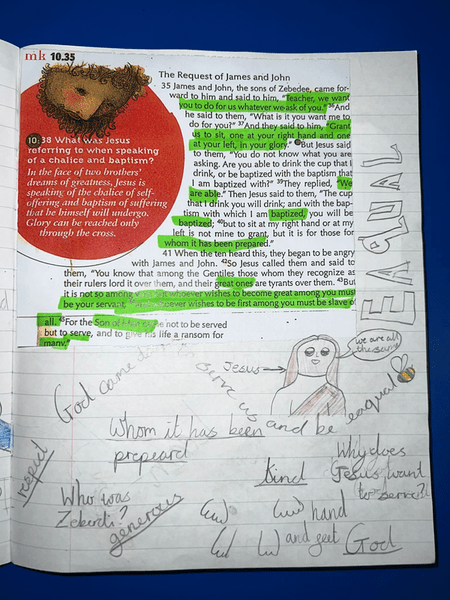 mk 10.35
The Request of James and John
35 James and John, the sons of Zebedee, came for-
ward to him and said to him, "Teacher, we want
you to do for us whatever we ask of you." 36And
he said to them, "What is it you want me to
do for you?" 37And they said to him, "Grant
us to sit, one at your right hand and one
at your left, in your glory." 38But Jesus said
to them, "You do not know what you are
asking. Are you able to drink the cup that I
drink, or be baptized with the baptism that
I am baptized with?" 39They replied, "We
are able." Then Jesus said to them, "The cup
that I drink you will drink; and with the bap-
tism with which I am baptized, you will be
baptized; 40but to sit at my right hand or at my
left is not mine to grant, but it is for those for
whom it has been prepared."
41 When the ten heard this, they began to be angry
with James and John. 42So Jesus called them and said to
them, "You know that among the Gentiles those whom they recognize as
their rulers lord it over them, and their great ones are tyrants over them. 43But
it is not so among you; but whoever wishes to become great among you must
be your servant, 44and whoever wishes to be first among you must be slave of
all. 45For the Son of Man came not to be served
but to serve, and to give his life a ransom for
many."
10:38 What was Jesus
referring to when speaking
of a chalice and baptism?
In the face of two brothers'
dreams of greatness, Jesus is
speaking of the chalice of self-
offering and baptism of suffering
that he himself will undergo.
Glory can be reached only
through the cross.
Jesus
we are all
the same
God came to
serve us and be eaqual
Whom it has been
prepeard
respect
Who was
Zebedi?
generous
Kind
Why does
Jesus want
to serve?
hand
and feet
God